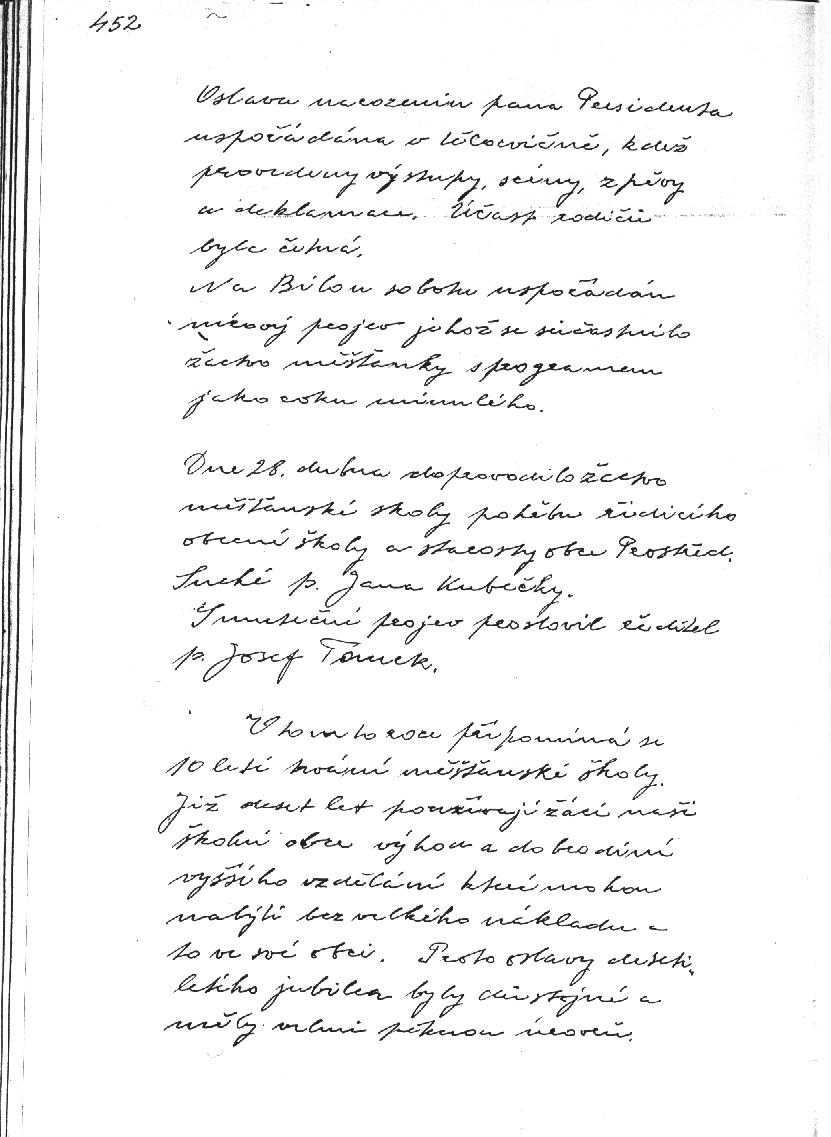 452
Oslava narozenin pana Presidenta
uspořádána v tělocvičně, když
provedeny výstupy, scény, zpěvy
a deklamace. Účast rodičů
byla četná.
Na Bílou sobotu uspořádán
mírový projev jehož se súčastnilo
žactvo měšťanky s programem
jako roku minulého.
Dne 28. dubna doprovodilo žactvo
měšťanské školy pohřbu řídícího
obecné školy a starosty obce Prostřed.
Suché p. Jana Kubečky.
Smuteční projev proslovil ředitel
p. Josef Tomek.
V tomto roce připomíná se
10 letí trvání měšťanské školy.
Již deset let používají žáci naší
školní obce výhod a dobrodiní
vyššího vzdělání které mohou
nabýti bez velkého nákladu a
to ve své obci. Proto oslavy deseti-
letého jubilea byly důstojné a
měly velmi pěknou úroveň.